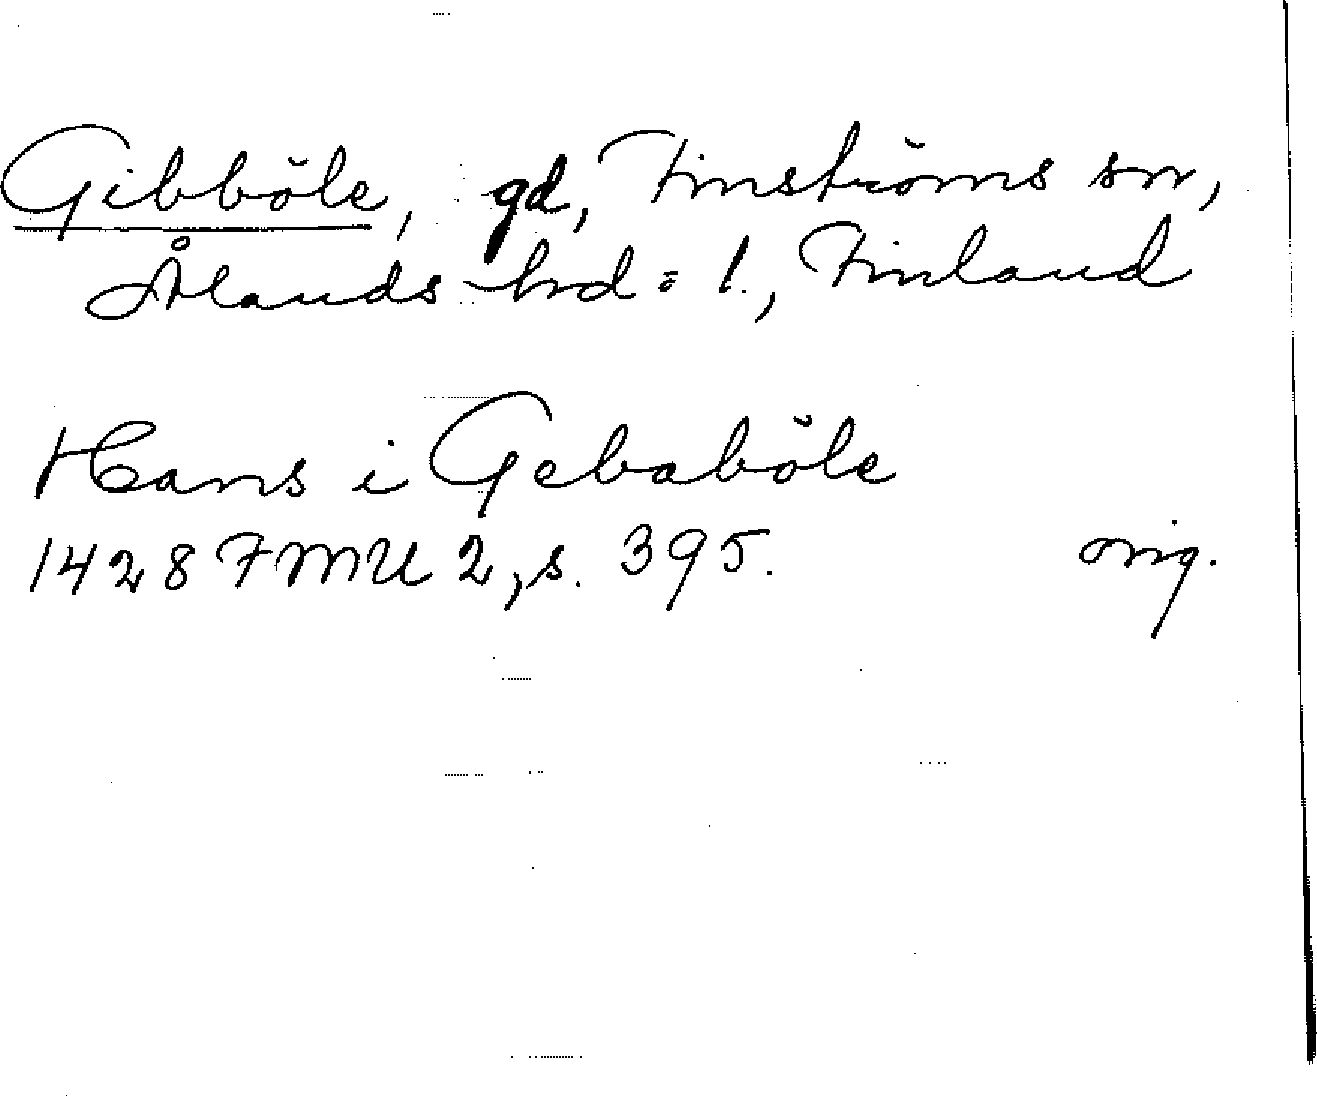 Gibböle, gd, Finströms sn,
Ålands hd = l., Finland
Hans i Gebaböle
1428 FMU 2, s. 395. orig.